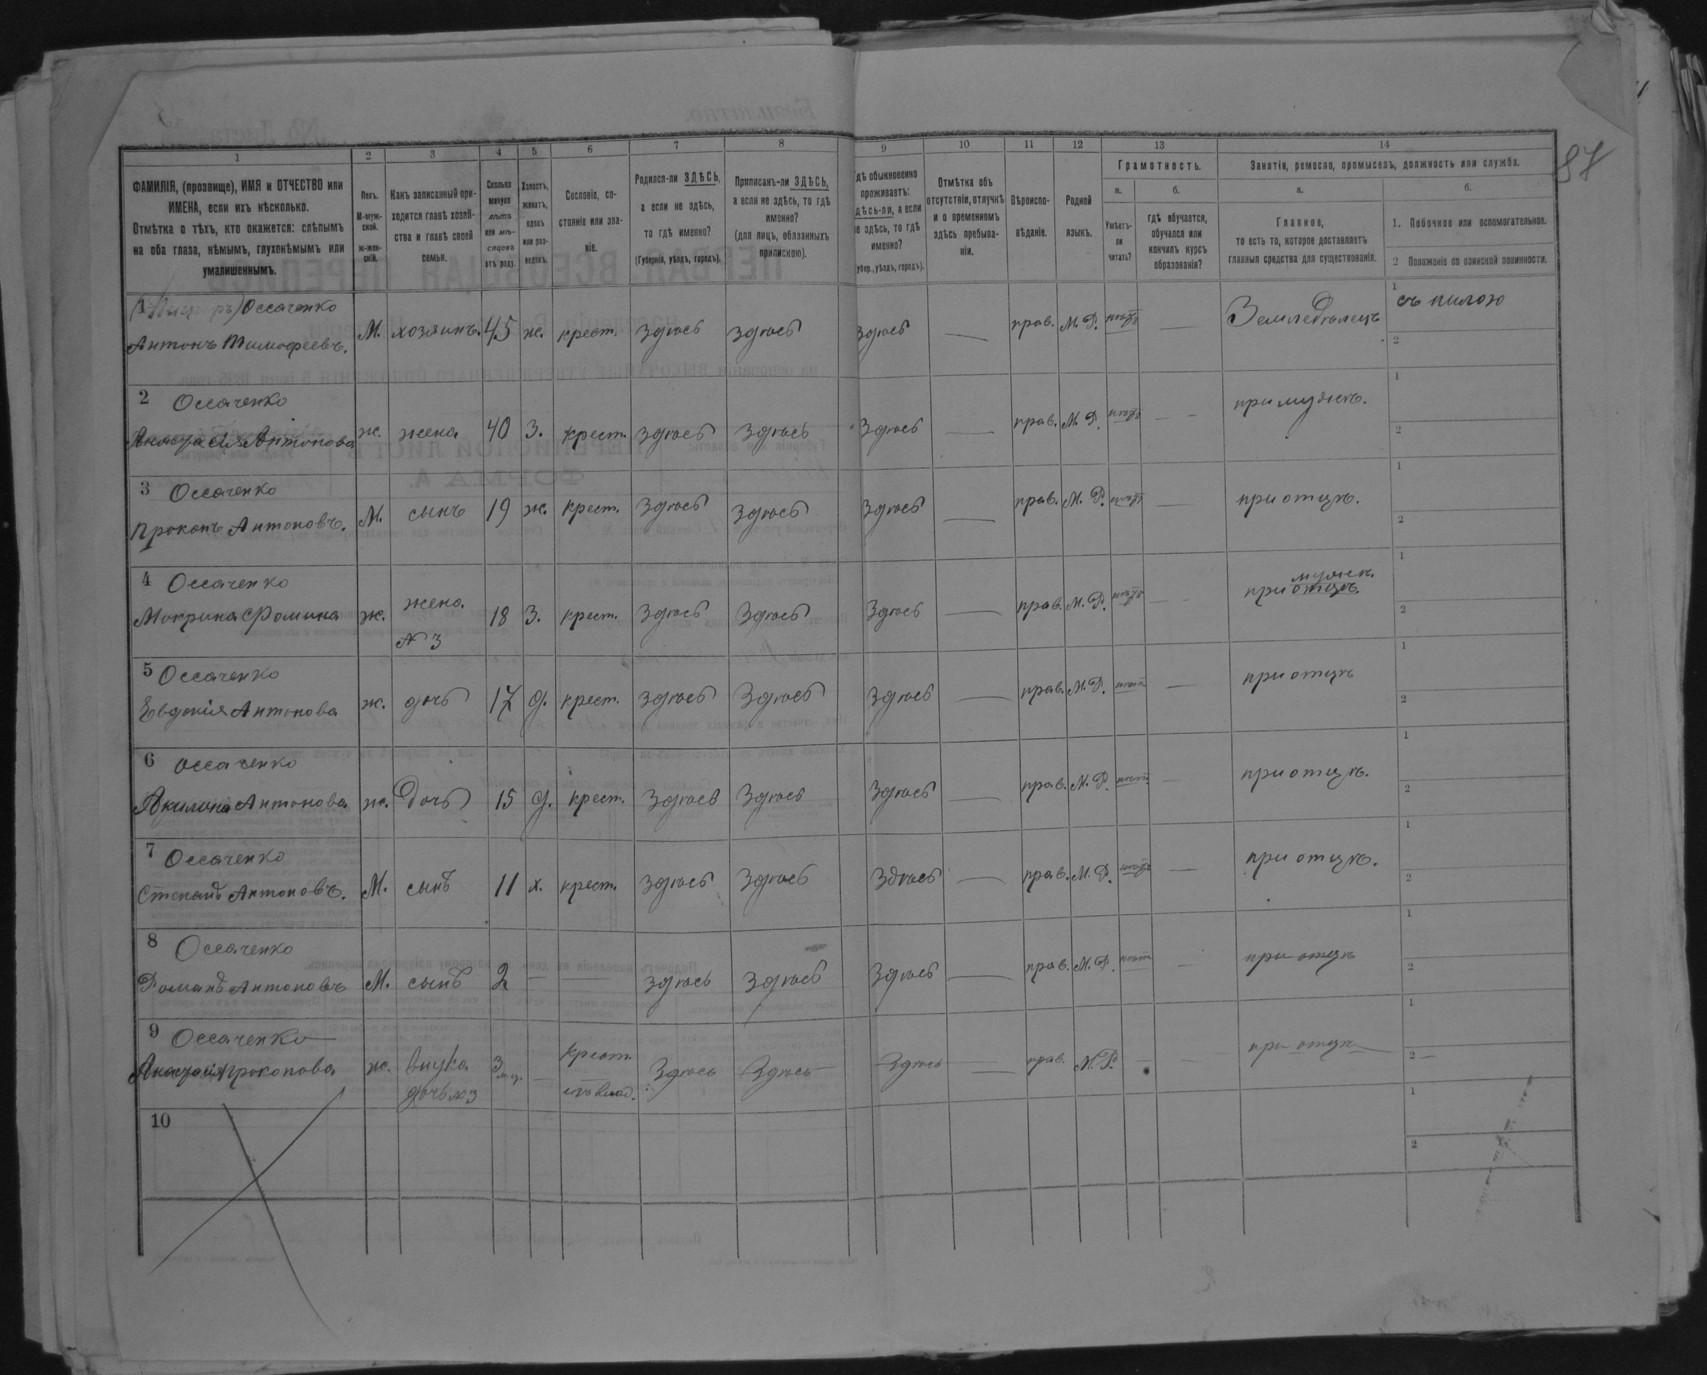 87
1 2 3 4 5 6 7 8 9 10 11 12 13 14
ФАМИЛІЯ, (прозвище), ИМЯ и ОТЧЕСТВО или ИМЕНА, если ихъ нѣсколько.
Отмѣтка о тѣхъ, кто окажется: слѣпымъ на оба глаза, нѣмымъ, глухонѣмымъ или умалишеннымъ.
Полъ.
М-муж-
ской.
ж-жен-
скій.
Какъ записанный при-
ходится главѣ хозяй-
ства и главѣ своей
семьи.
Сколько
минуло
лѣтъ
или мѣ-
сяцевъ
отъ роду.
Холостъ,
женатъ,
вдовъ
или раз-
веденъ.
Сословіе, со-
стояніе или зва-
ніе.
Родился-ли ЗДѢСЬ,
а если не здѣсь,
то гдѣ именно?
(Губернія, уѣздъ, городъ).
Приписанъ-ли ЗДѢСЬ,
а если не здѣсь, то гдѣ
именно?
(для лицъ, обязанныхъ
припискою).
дѣ обыкновенно
проживаетъ:
дѣсь-ли, а если
не здѣсь, то гдѣ
именно?
убер., уѣздъ, городъ).
Отмѣтка объ
отсутствіи, отлучкѣ
и о временномъ
здѣсь пребыва-
ніи.
Вѣроиспо-
вѣданіе.
Родной
языкъ.
Грамотность.
а.
Умѣетъ-
ли
читать?
б.
гдѣ обучается,
обучался или
кончилъ курсъ
образованія?
Занятія, ремесло, промыселъ, должность или служба.
а.
Главное,
то есть то, которое доставляетъ
главныя средства для существованія.
б.
1. Побочное или вспомогательное.
2 Положеніе по воинской повинности.
1 Оссаченко
Антонъ Тимофеевъ. М. хозяинъ. 45 ж. крест. здѣсь здѣсь здѣсь — прав. М. Р. — Земледѣлецъ 1 съ пилою
2
2 Оссаченко
Анастасія Антонова ж. жена 40 З. крест. здѣсь здѣсь здѣсь — прав. М. Р. — при мужѣ. 1
2
3 Оссаченко
Прокопъ Антоновъ. М. сынъ 19 ж. крест. здѣсь здѣсь здѣсь — прав. М. Р. — при отцѣ. 1
2
4 Оссаченко
Мокрина Фомина ж. жена №3 18 З. крест. здѣсь здѣсь здѣсь — прав. М. Р. — при отцѣ мужѣ. 1
2
5 Оссаченко
Евдокія Антонова ж. дочь 17 д. крест. здѣсь здѣсь здѣсь — прав. М. Р. — при отцѣ 1
2
6 Оссаченко
Акилина Антонова ж. дочь 15 д. крест. здѣсь здѣсь здѣсь — прав. М. Р. — при отцѣ. 1
2
7 Оссаченко
Степанъ Антоновъ. М. сынъ 11 х. крест. здѣсь здѣсь здѣсь — прав. М. Р. — при отцѣ. 1
2
8 Оссаченко
Романъ Антоновъ М. сынъ 2 — здѣсь здѣсь здѣсь — прав. М. Р. — при отцѣ 1
2
9 Оссаченко
Анастасія Прокопова ж. внука дочь №3 3 мц. — крест. здѣсь здѣсь здѣсь — прав. М. Р. — — при отцѣ 1
2 —
10 1
2